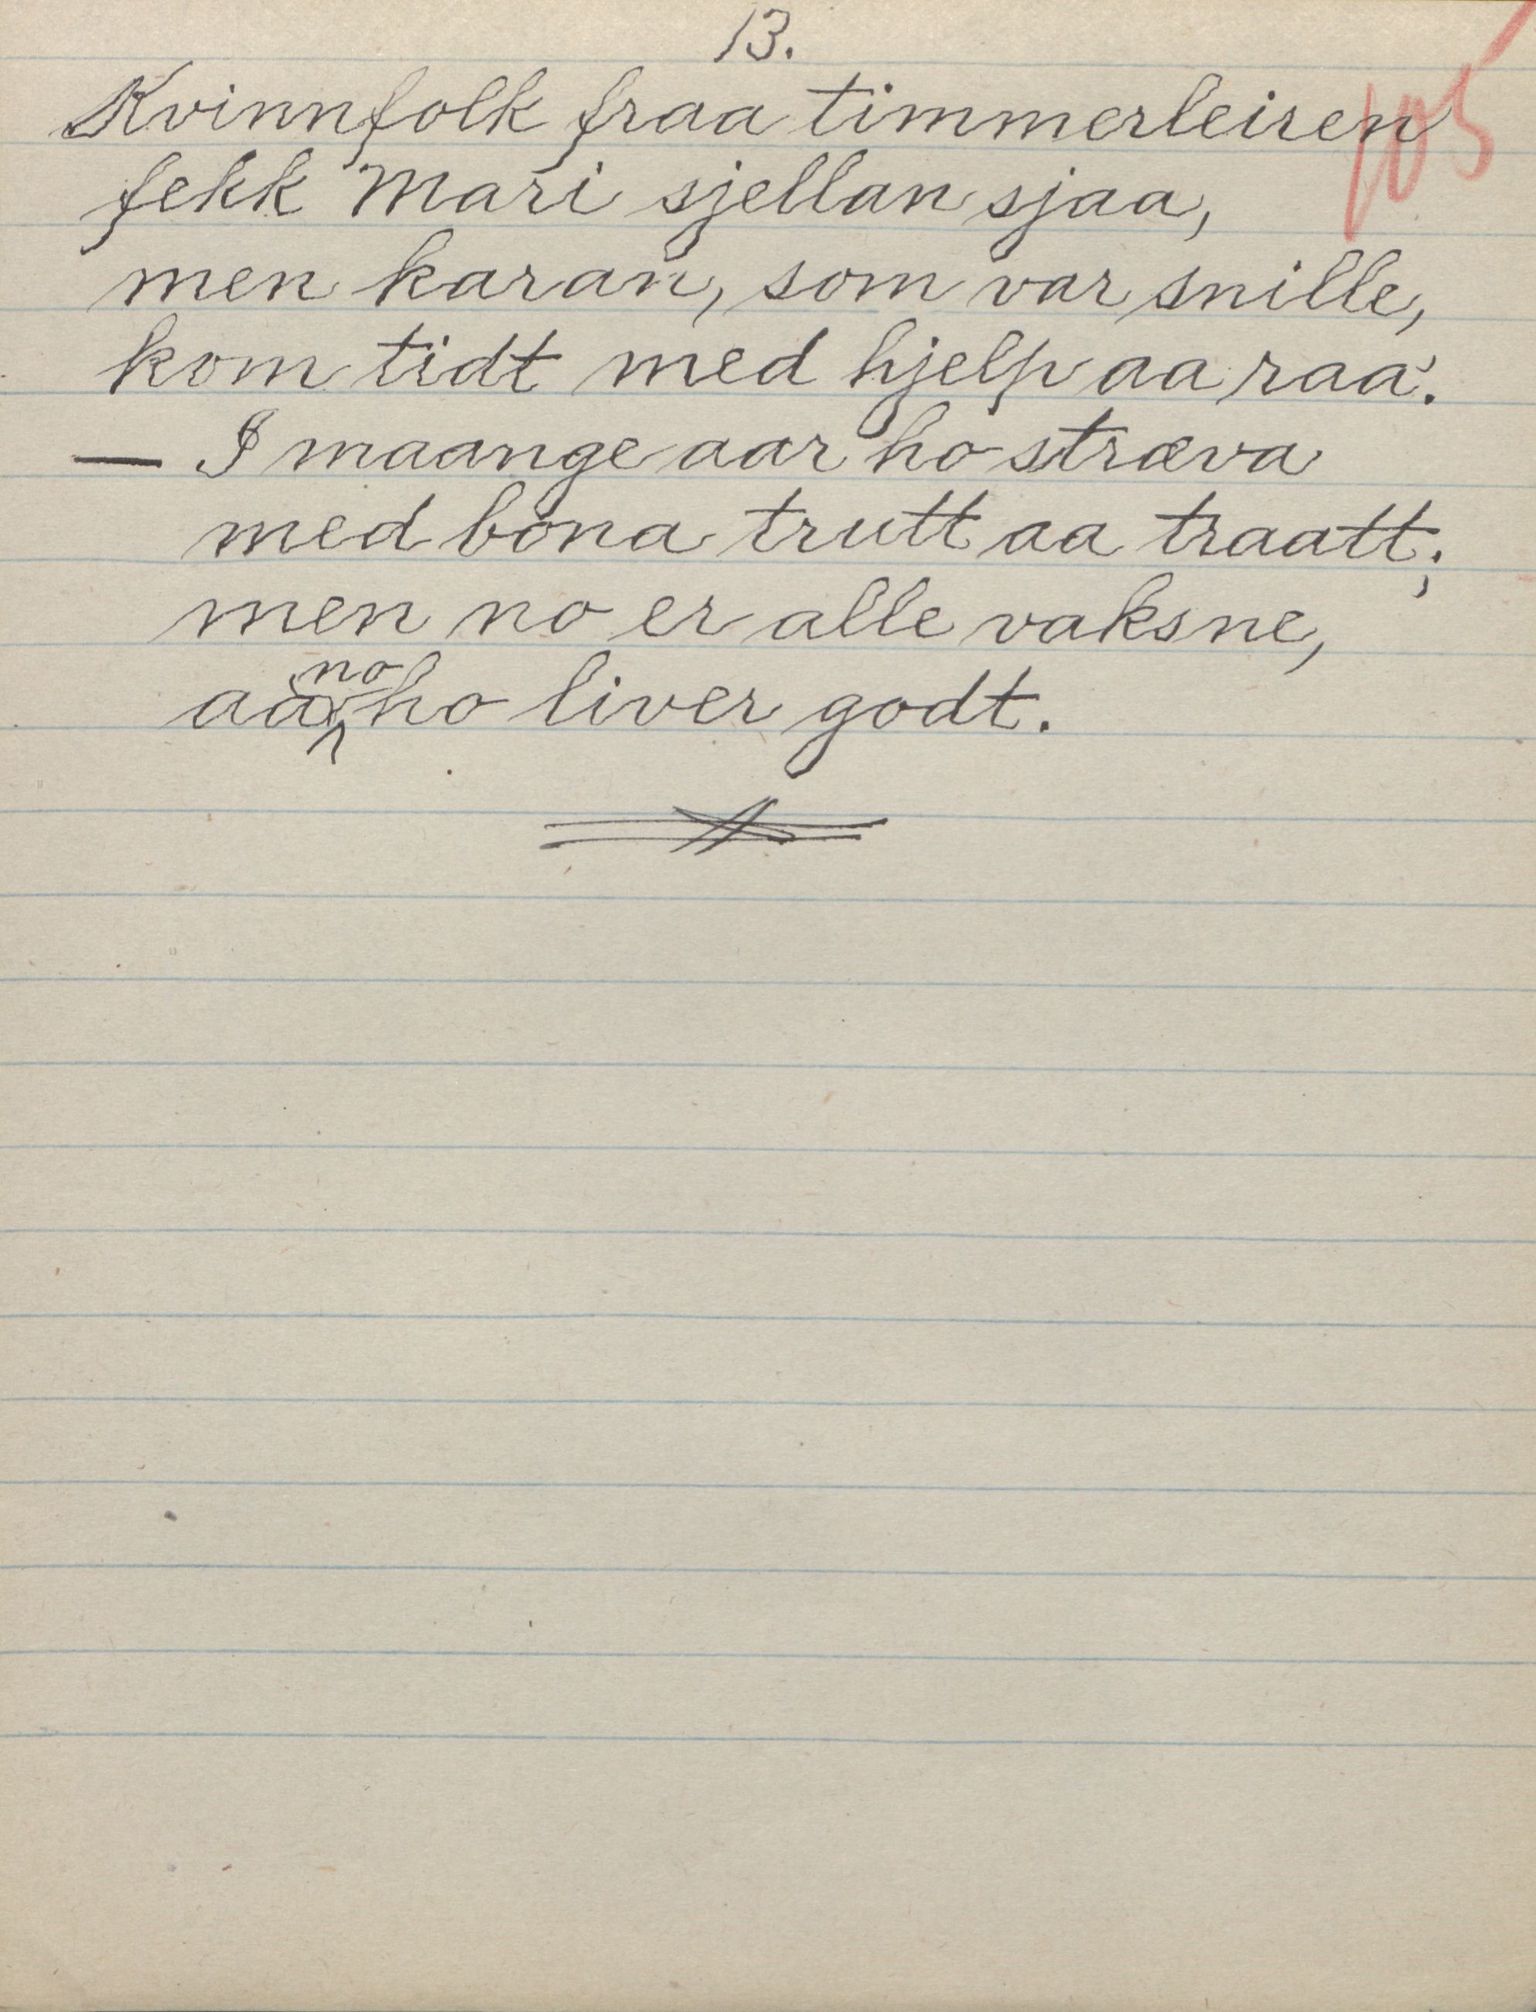 13.
105
Kvinnfolk fraa timmerleiren
fekk Mari sjellan sjaa,
men karan, som var snille,
kom tidt med hjelp aa raa'.
— I maange aar ho stræva
med bóna trutt aa traatt;
men no er alle vaksne,
aa no ho liver godt.